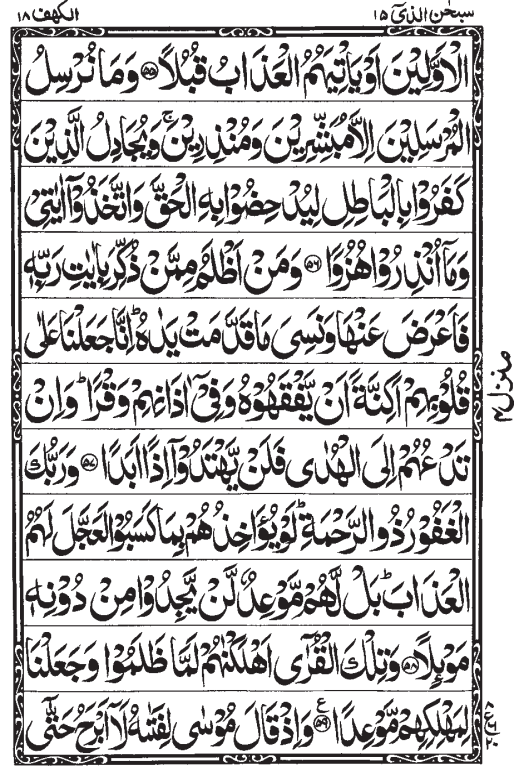 سبحٰن الذیٓ ۱۵
الکهف ۱۸
الْاَوَّلِیْنَ اَوْ یَاْتِیَهُمُ الْعَذَابُ قُبُلًا ﴿۵۵﴾ وَ مَا نُرْسِلُ
الْمُرْسَلِیْنَ اِلَّا مُبَشِّرِیْنَ وَ مُنْذِرِیْنَ ۚ وَ یُجَادِلُ الَّذِیْنَ
كَفَرُوْا بِالْبَاطِلِ لِیُدْحِضُوْا بِهِ الْحَقَّ وَ اتَّخَذُوْۤا اٰیٰتِیْ
وَ مَاۤ اُنْذِرُوْا هُزُوًا ﴿۵۶﴾ وَ مَنْ اَظْلَمُ مِمَّنْ ذُكِّرَ بِاٰیٰتِ رَبِّهٖ
فَاَعْرَضَ عَنْهَا وَ نَسِیَ مَا قَدَّمَتْ یَدٰهُ ؕ اِنَّا جَعَلْنَا عَلٰی
قُلُوْبِهِمْ اَكِنَّةً اَنْ یَّفْقَهُوْهُ وَ فِیْۤ اٰذَانِهِمْ وَقْرًا ؕ وَ اِنْ
تَدْعُهُمْ اِلَی الْهُدٰی فَلَنْ یَّهْتَدُوْۤا اِذًا اَبَدًا ﴿۵۷﴾ وَ رَبُّكَ
الْغَفُوْرُ ذُو الرَّحْمَةِ ؕ لَوْ یُؤَاخِذُهُمْ بِمَا كَسَبُوْا لَعَجَّلَ لَهُمُ
الْعَذَابَ ؕ بَلْ لَّهُمْ مَّوْعِدٌ لَّنْ یَّجِدُوْا مِنْ دُوْنِهٖ
مَوْىِٕلًا ﴿۵۸﴾ وَ تِلْكَ الْقُرٰۤی اَهْلَكْنٰهُمْ لَمَّا ظَلَمُوْا وَ جَعَلْنَا
لِمَهْلِكِهِمْ مَّوْعِدًا ﴿۵۹﴾ ع وَ اِذْ قَالَ مُوْسٰی لِفَتٰىهُ لَاۤ اَبْرَحُ حَتّٰۤی
منزل ۴